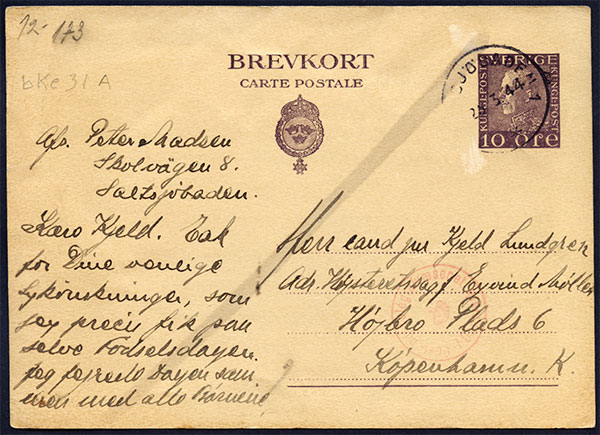 12-173
bKe 31 A
BREVKORT
CARTE POSTALE
SVERIGE
KUNGF.POST
KUNGF.POST
10 ÖRE
3.44
Afs. Peter Madsen
Skolvägen 8.
Saltsjöbaden.
Kære Kjeld. Tak
for Dine venlige
Lykønskninger, som
jeg præcis fik paa
selve Fødselsdagen.
Jeg fejrede Dagen sam
men med alle Børnene,
Herr cand jur Kjeld Lundgren
Adr. Højsteretssagf Eyvind Møller
Højbro Plads 6
Köpenhamn. K.